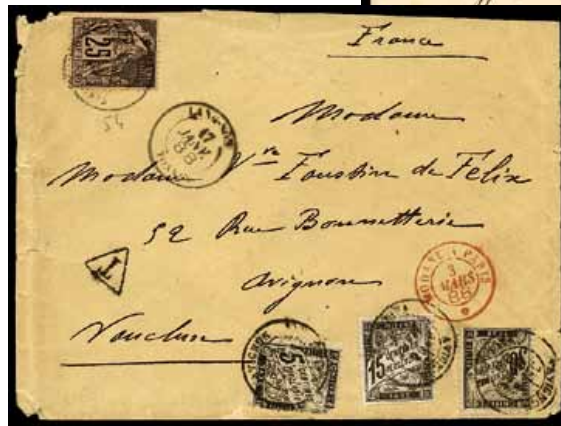 France
25
54
LANGSON
17
JANV
88
Madame
Madame Vve Faustin de Félix
52 Rue Bonnetterie
T
Avignon
Vaucluse
MODANE A PARIS
3
MARS
88
5
15
30